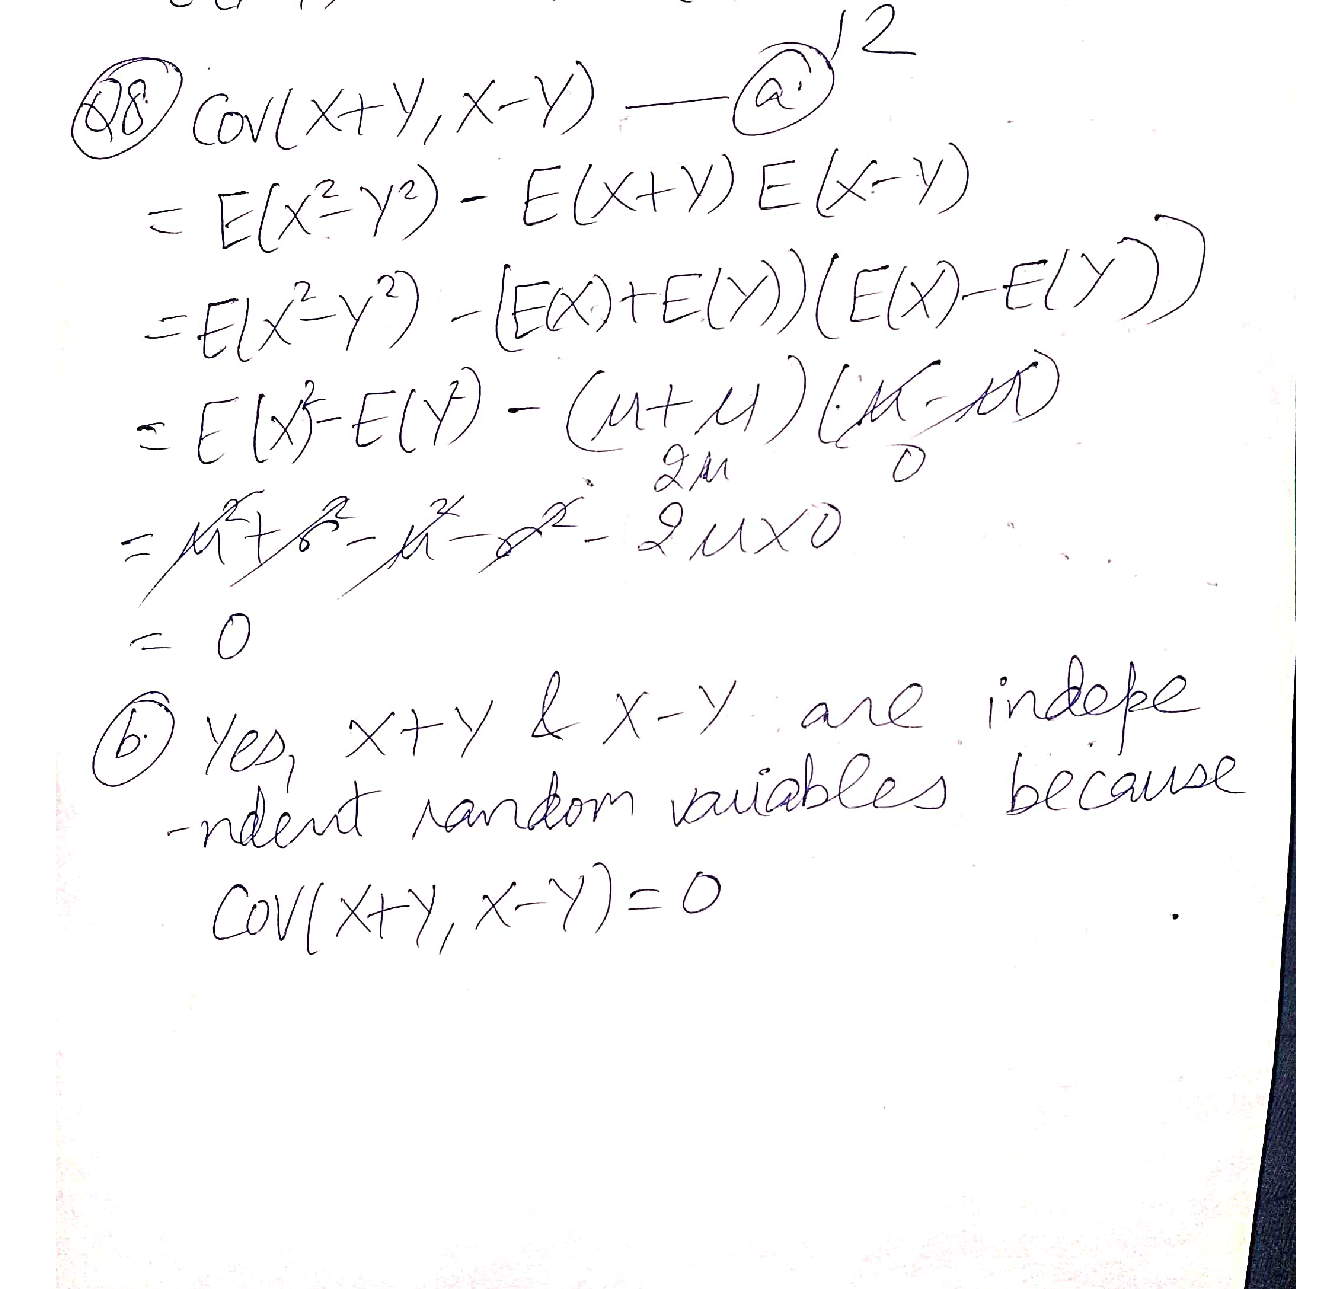 12
Q8 Cov(X+Y, X-Y) — a.
= E(X²-Y²) - E(X+Y) E(X-Y)
= E(X²-Y²) - (E(X)+E(Y))(E(X)-E(Y))
= E(X²)-E(Y²) - (μ+μ)(μ-μ)
2μ 0
= μ²+σ²-μ²-σ² - 2μ×0
= 0
b. Yes, X+Y & X-Y are indepe
-ndent random variables because
Cov(X+Y, X-Y)=0